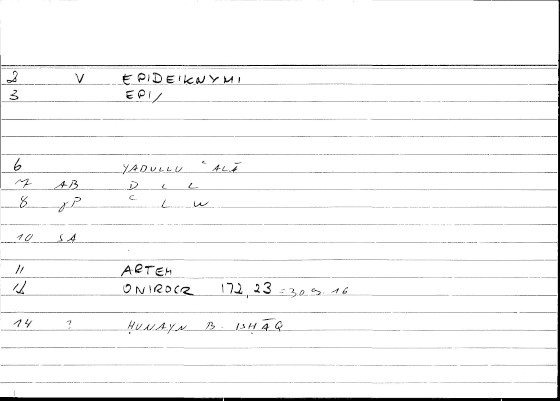 2 V EPIDEIKNYMI
3 EPI/
6 YADULLU ʿALĀ
7 AB D L L
8 γP ʿ L W
10 SA
11 ARTEM
12 ONIROCR 172,23 =309,16
14 ? ḤUNAYN B. ISḤĀQ